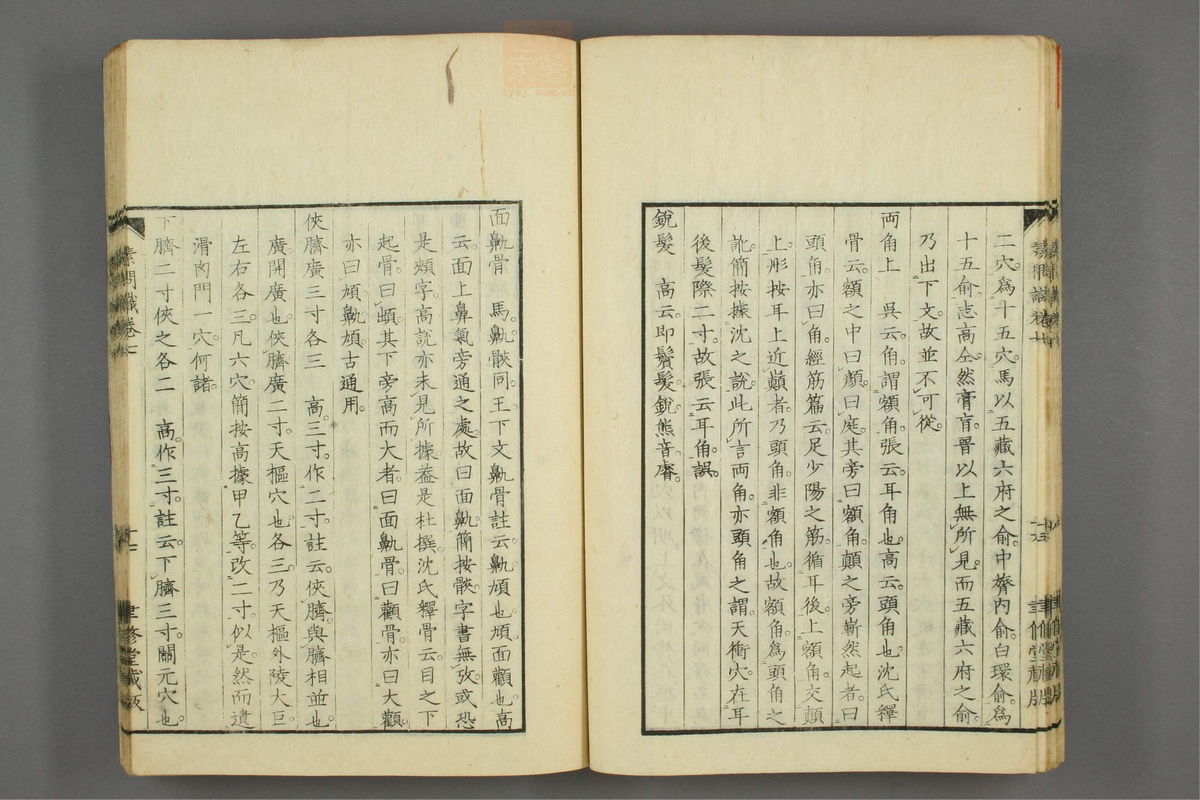 二穴爲十五穴馬以五藏六府之俞中膂內俞白環俞爲
十五俞志高仝然膏肓晉以上無所見而五藏六府之俞
乃出下文故並不可從
兩角上 吳云角謂額角張云耳角也高云頭角也沈氏釋
骨云額之中曰顏曰庭其旁曰額角顛之旁嶄然起者曰
頭角亦曰角經筋篇云足少陽之筋循耳後上額角交顛
上形按耳上近巔者乃頭角非額角也故額角爲頭角之
訛簡按據沈之說此所言兩角亦頭角之謂天衝穴在耳
後髮際二寸故張云耳角誤
銳髮 高云即鬢髮銳熊音
面鼽骨 馬鼽骸同王下文鼽骨註云鼽頄也頄面顴也高
云面上鼻氣旁通之處故曰面鼽簡按骸字書無攷或恐
是頰字高說亦未見所據蓋是杜撰沈氏釋骨云目之下
起骨曰䪼其下旁高而大者曰面鼽骨曰顴骨亦曰大顴
亦曰頄鼽頄古通用
俠臍廣三寸各三 高三寸作二寸註云俠臍與臍相並也
廣開廣也俠臍廣二寸天樞穴也各三乃天樞外陵大巨
左右各三凡六穴簡按高據甲乙等改二寸似是然而遺
滑肉門一穴何諸
下臍二寸俠之各二 高作三寸註云下臍三寸關元穴也
素問識卷七
十一
聿修堂藏版